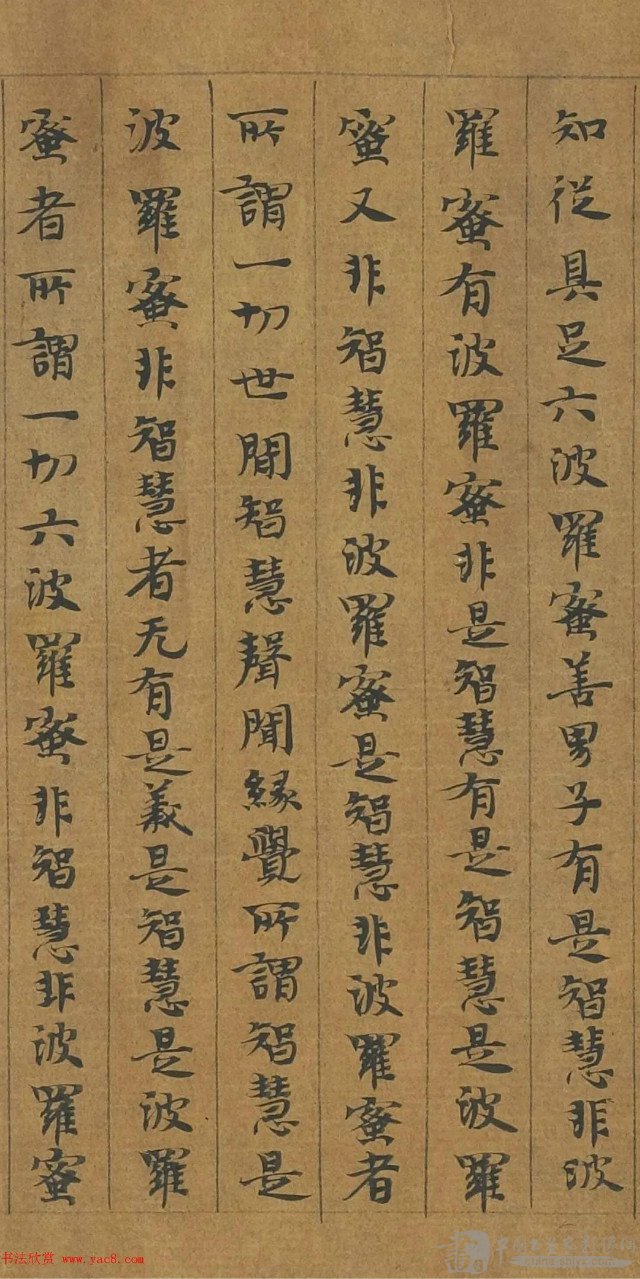 知從具足六波羅蜜善男子有是智慧非波
羅蜜有波羅蜜非是智慧有是智慧是波羅
蜜又非智慧非波羅蜜是智慧非波羅蜜者
所謂一切世間智慧聲聞緣覺所謂智慧是
波羅蜜非智慧者无有是義是智慧是波羅
蜜者所謂一切六波羅蜜非智慧非波羅蜜
书法欣赏 www.yac8.com